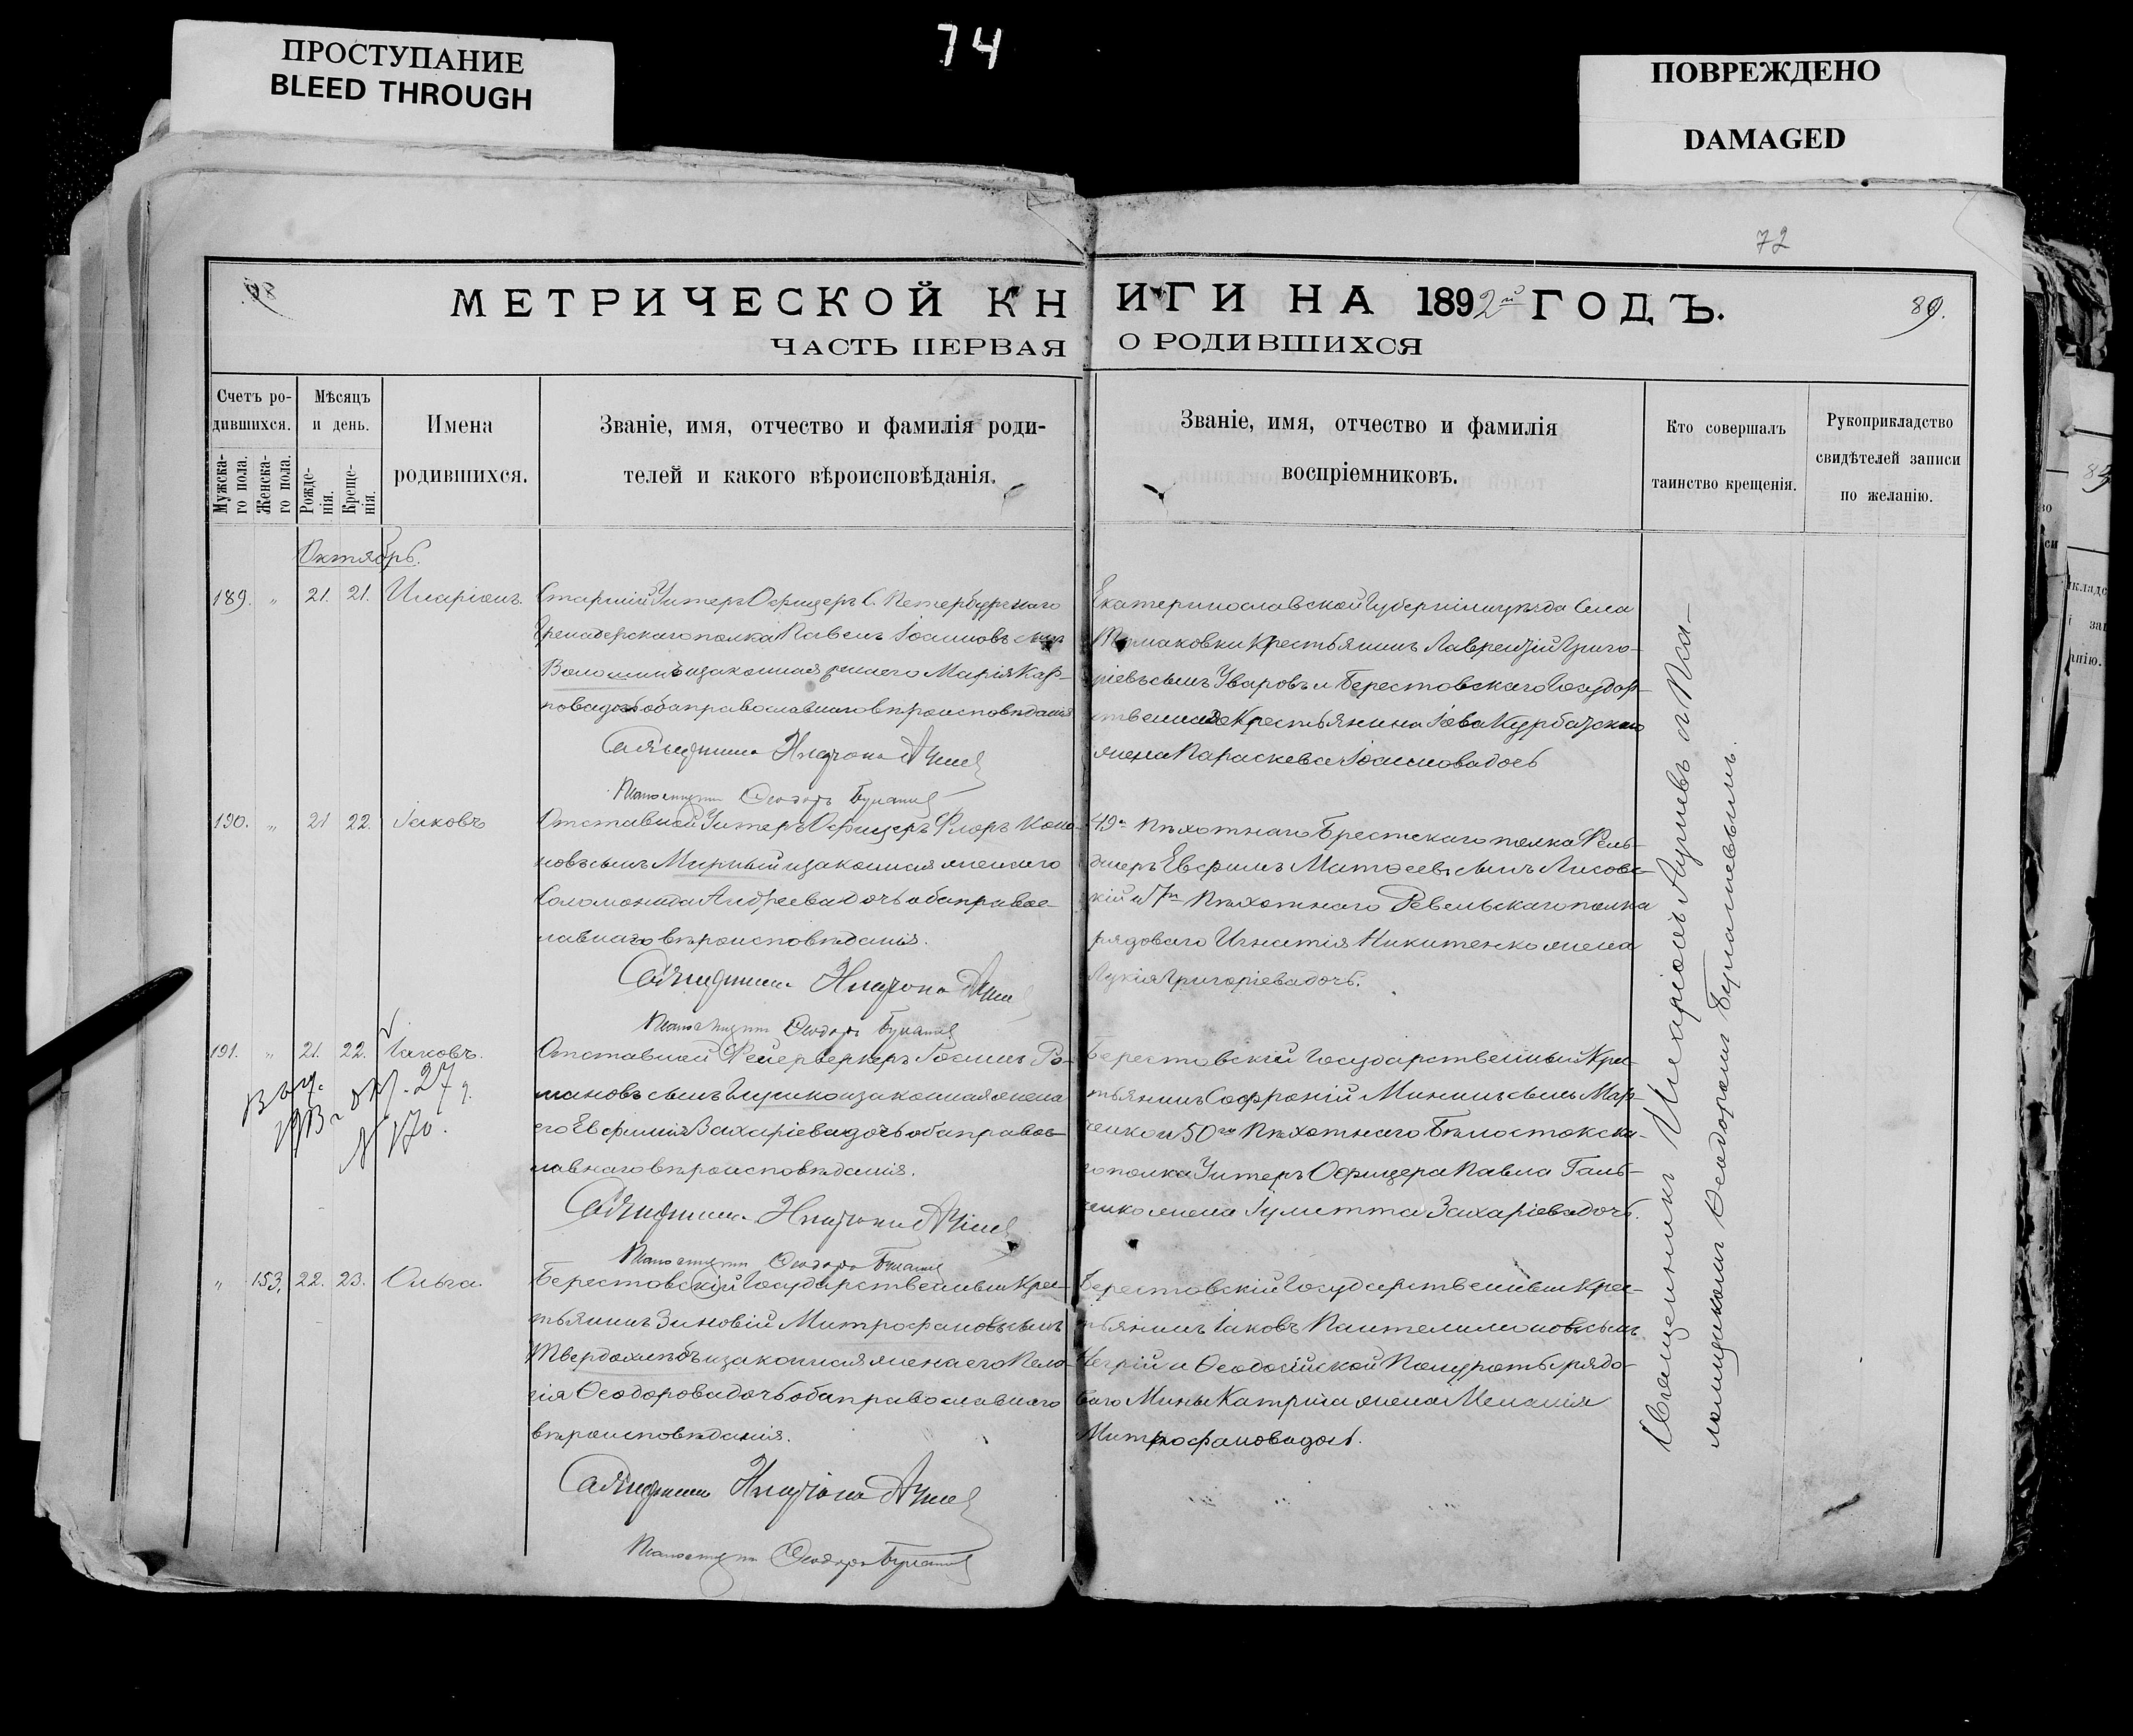 ПРОСТУПАНИЕ
BLEED THROUGH
74
ПОВРЕЖДЕНО
DAMAGED
72
МЕТРИЧЕСКОЙ КНИГИ НА 1892й ГОДЪ.
89.
ЧАСТЬ ПЕРВАЯ О РОДИВШИХСЯ
Счетъ ро-
дившихся.
Мужска-
го пола.
Женска-
го пола.
Мѣсяцъ
и день.
Рожде-
нія.
Креще-
нія.
Имена
родившихся.
Званіе, имя, отчество и фамилія роди-
телей и какого вѣроисповѣданія.
Званіе, имя, отчество и фамилія
воспріемниковъ.
Кто совершалъ
таинство крещенія.
Рукоприкладство
свидѣтелей записи
по желанію.
Октябрь.
189. „ 21. 21. Иларіонъ.
Старшій Унтеръ Офицеръ С. Петербургскаго
Гренадерскаго полка Павелъ Іоанновъ сынъ
Волошинъ и законная жена его Марія Кар-
пова дочь оба православнаго вѣроисповѣданія
Священникъ
Псаломщикъ Ѳеодоръ
Екатеринославской Губерніи и уѣзда Села
Томаковки Крестьянинъ Лаврентій Григо-
ріевъ сынъ Уваровъ и Берестовскаго Государ-
ственнаго Крестьянина Іова Курбатскаго
жена Параскева Іоаннова дочь
190. „ 21 22. Іаковъ
Отставной Унтеръ Офицеръ Флоръ Коно-
новъ сынъ Мирный и законная жена его
Соломонида Андреева дочь оба правос-
лавнаго вѣроисповѣданія.
Священникъ
Псаломщикъ Ѳеодоръ
49го Пѣхотнаго Брестскаго полка Фель-
дшеръ Евфимъ Матѳеевъ сынъ Лисовс-
кій и 7го Пѣхотнаго Ревельскаго полка
рядоваго Игнатія Никитенко жена
Лукія Григоріева дочь.
191. „ 21. 22. Іаковъ.
Выд.
окт. 27
№ 170.
Отставной Фейерверкеръ Іоаннъ Ро-
мановъ сынъ и законная жена
его Евфимія Захаріева дочь оба правос-
лавнаго вѣроисповѣданія.
Священникъ
Псаломщикъ Ѳеодоръ
Берестовскій Государственный Крес-
тьянинъ Софроній Мининъ сынъ Мар-
ченко и 50го Пѣхотнаго Бѣлостокска-
го полка Унтеръ Офицера Павла Галь-
ченко жена Іулитта Захаріева дочь.
„ 153. 22. 23. Ольга.
Берестовскій Государственный Крес-
тьянинъ Зиновій Митрофановъ сынъ
Твердохлѣбъ и законная жена его Пела-
гія Ѳеодорова дочь оба православнаго
вѣроисповѣданія.
Священникъ
Псаломщикъ Ѳеодоръ
Берестовскій Государственный Крес-
тьянинъ Іаковъ Пантелимоновъ сынъ
Негрій и Ѳеодосійской рядо-
ваго Мины Катрича жена Меланія
Митрофанова дочь.
Священникъ Иларіонъ и Пса-
ломщикомъ Ѳеодоромъ